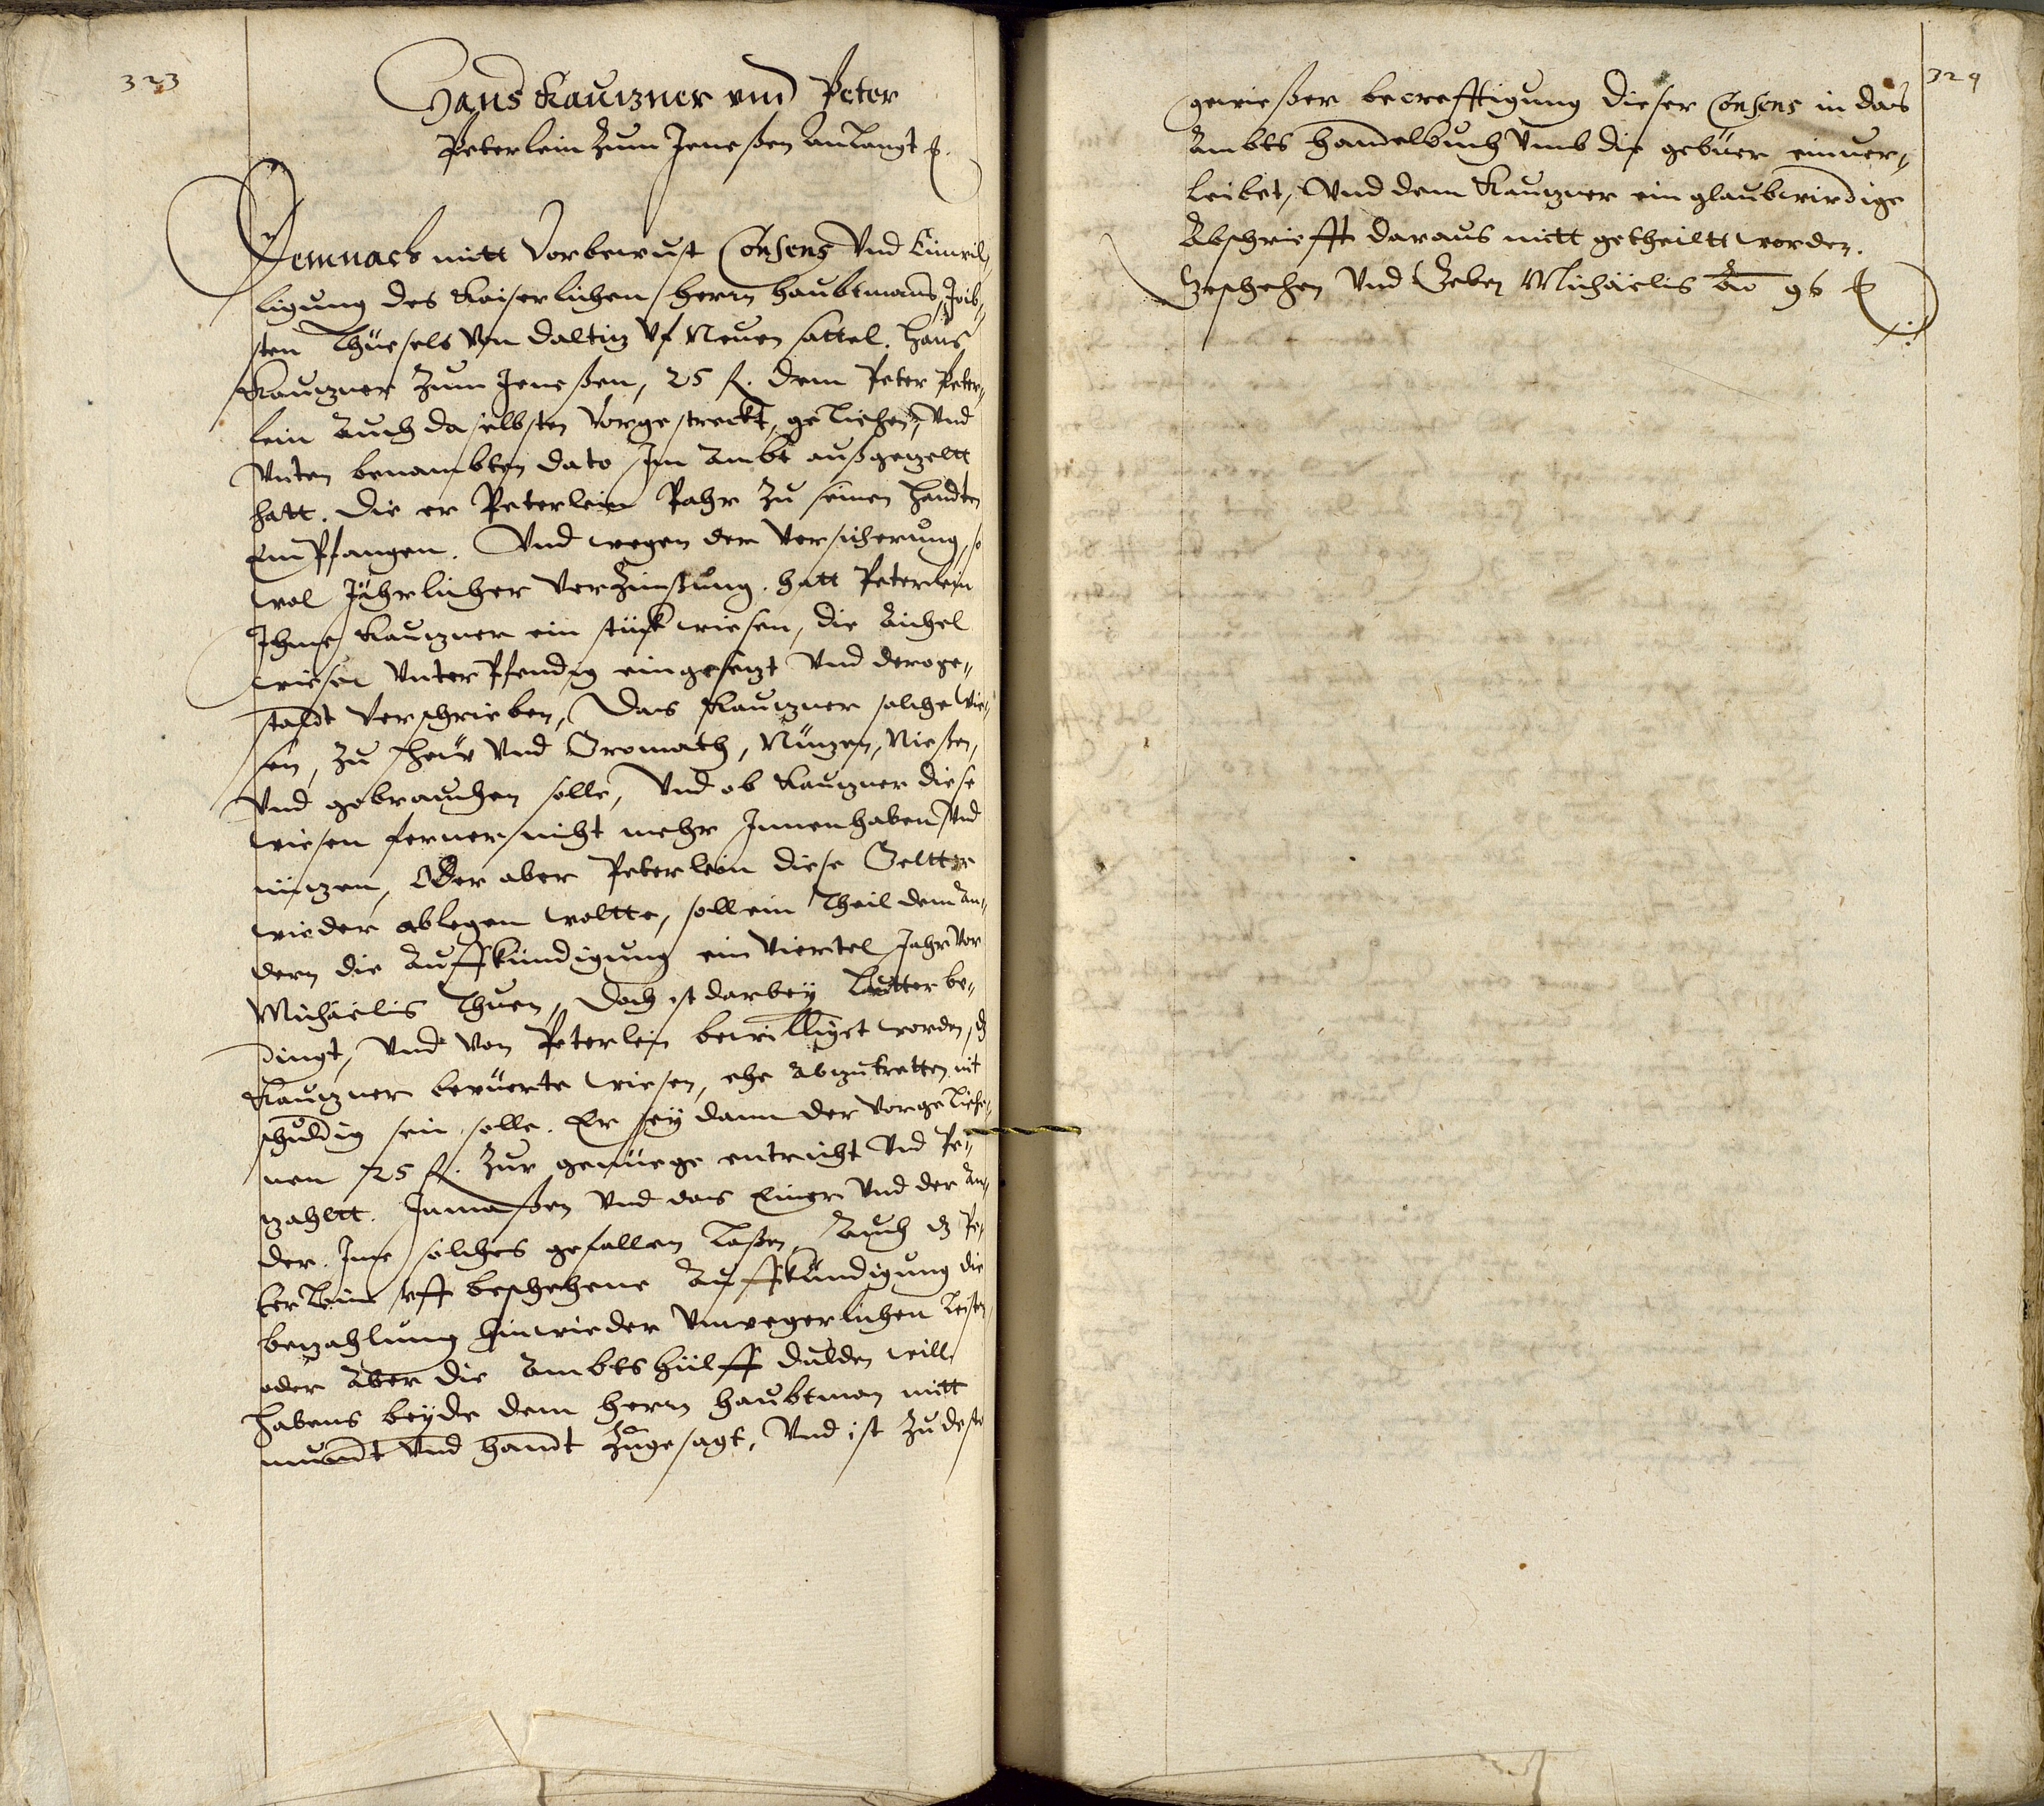 323
Hans Kauzner und Peter
Peterlein zum Jeneßen anlangt
Demnach mitt Vorbewust Consens Vnd Einwil„
ligung des Kaiserlichen herrn haubtmans, Jobs„
sten Thüesels Von daltiz Vf Neuen sattel. Hans
Kauzner zum Jeneßen, 25 fl. dem Peter Peter„
lein Auch daselbsten Vorgestreckt, geliehen, Vnd
Vnten benambten dato Im Ambt außgezeltt
hatt. die er Peterlein Pahr zu seinen handten
EmPfangen. Vnd wegen der Versicherung, so
wol Jährlicher Verzinßung. hatt Peterlein
Ihme Kauzner ein stück wiesen, die Aichel
wiesen VnterPfendig eingesezt Vnd deroge„
staldt Verschrieben, Das Kauzner solche Wie„
sen, zu Heu Vnd Gromath, Nüzen, Nießen,
Vnd gebrauchen solle, Vnd ob Kauzner diese
wiesen ferner nicht mehr Innenhaben Vnd
nüzen, Oder aber Peterlein diese Geltter
wieder ablegen woltte, soll ein Theil dem An„
dern die Auffkündigung ein Viertel Jahr Vor
Michaelis Thuen, Doch ist darbey Lautter be„
dingt, Vnd Von Peterlein bewilliget worden, dz
Kauzner berüerte wiesen, ehe abzutretten nit
schuldig sein solle. Er sey dann der Vorgeliehe„
nen 25 fl. zur genüege entricht Vnd Pe„
zahltt. Inmaßen Vnd das Einer Vnd der An„
der. Ime solches gefallen Laßen, Auch dz Pe„
terlein vff beschehene Auffkündigung die
bezahlung hinwieder Vnwegerlichen Leisten,
oder Aber die Ambtshülff dulden will,
habens beyde dem herrn haubtman mitt
mundt Vnd handt Zugesagt, Vnd ist zu desto
324
gewießer becrefftigung dieser Consens in das
Ambts handelbuch Vmb die gebüer einver„
leibet, Vnd dem Kauzner ein glaubwirdige
Abschriefft daraus mitt getheiltt worden.
Geschehen Vnd Geben Michaelis Ao 96